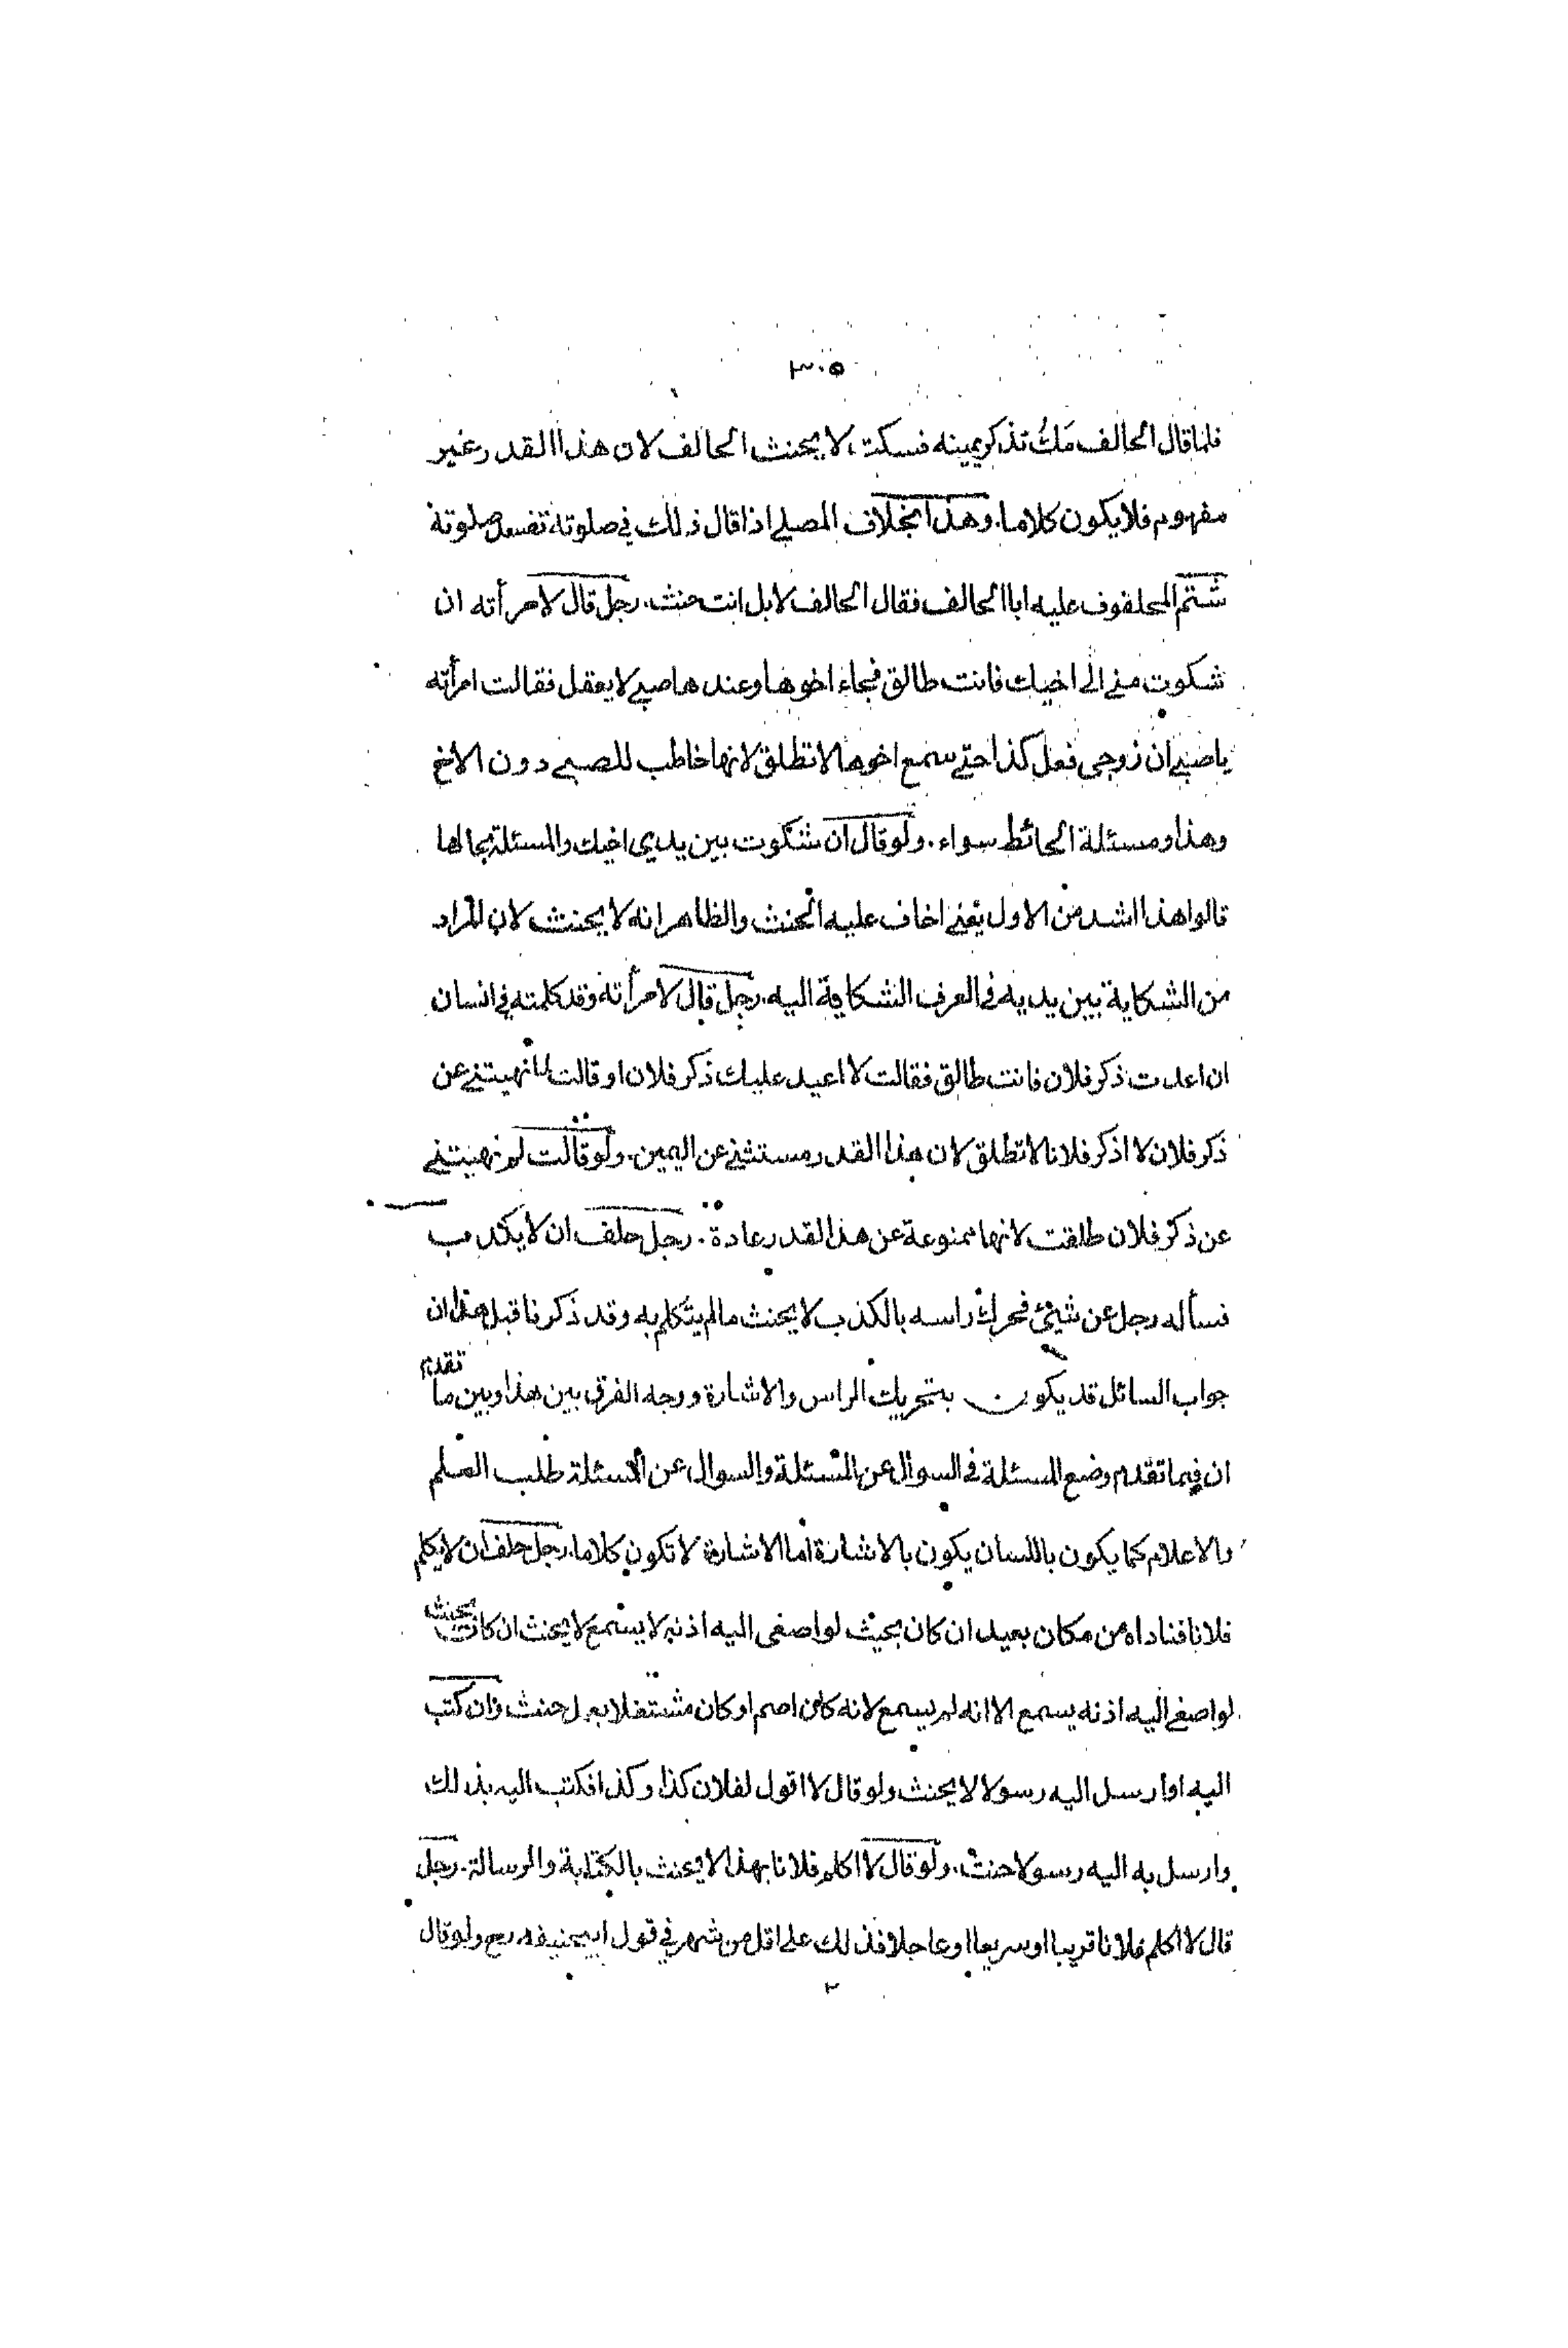 ٣٠٥
فلما قال الحالف مَكُ تذكر يمينه فسكت، لا يحنث الحالف لان هذا القدر غير
مفهوم فلا يكون كلاما. وهذا بخلاف المصلے اذا قال ذلك في صلوته تفسد صلوته
شتم المحلوف عليه ابا الحالف فقال الحالف لا بل انت حنث. رجل قال لامرأته ان
شكوت منے الے اخيك فانت طالق فجاء اخوها وعندها صبے لا يعقل فقالت امرأته
يا صبے ان زوجي فعل كذا حتے سمع اخوها لا تطلق لانها خاطب للصبے دون الاخ
وهذا ومسئلة الحائط سواء. ولو قال ان شكوت بين يدي اخيك والمسئلة بحالها
قالوا هذا اشد من الاول يعنے اخاف عليه الحنث والظاهر انه لا يحنث لان المراد
من الشكاية بين يديه في العرف الشكاية اليه. رجل قال لامرأته وقد كلمته في انسان
ان اعدت ذكر فلان فانت طالق فقالت لا اعيد عليك ذكر فلان او قالت لما نهيتنے عن
ذكر فلان لا اذكر فلانا لا تطلق لان هذا القدر مستثنے عن اليمين. ولو قالت لم نهيتنے
عن ذكر فلان طلقت لانها ممنوعة عن هذا القدر عادة. رجل حلف ان لا يكذب
فسأله رجل عن شيئ فحرك راسه بالكذب لا يحنث ما لم يتكلم به وقد ذكرنا قبل هذا ان
جواب السائل قد يكون بتحريك الراس والاشارة ووجه الفرق بين هذا وبين ما تقدم
ان فيما تقدم وضع المسئلة في السوال عن المسئلة والسوال عن المسئلة طلب العلم
والاعلام كما يكون باللسان يكون بالاشارة اما الاشارة لا تكون كلاما. رجل حلف ان لا يكلم
فلانا فناداه من مكان بعيد ان كان بحيث لو اصغى اليه اذنه لا يسمع لا يحنث ان كان بحيث
لو اصغے اليه اذنه يسمع الا انه لم يسمع لانه كان اصم او كان مشتغلا بعمل حنث وان كتب
اليه او ارسل اليه رسولا لا يحنث ولو قال لا اقول لفلان كذا وكذا فكتب اليه بذلك
وارسل به اليه رسولا حنث. ولو قال لا اكلم فلانا بهذا لا يحنث بالكتابة والرسالة. رجل
قال لا اكلم فلانا قريبا او سريعا او عاجلا فذلك علے اقل من شهر في قول ابيحنيفه رح ولو قال